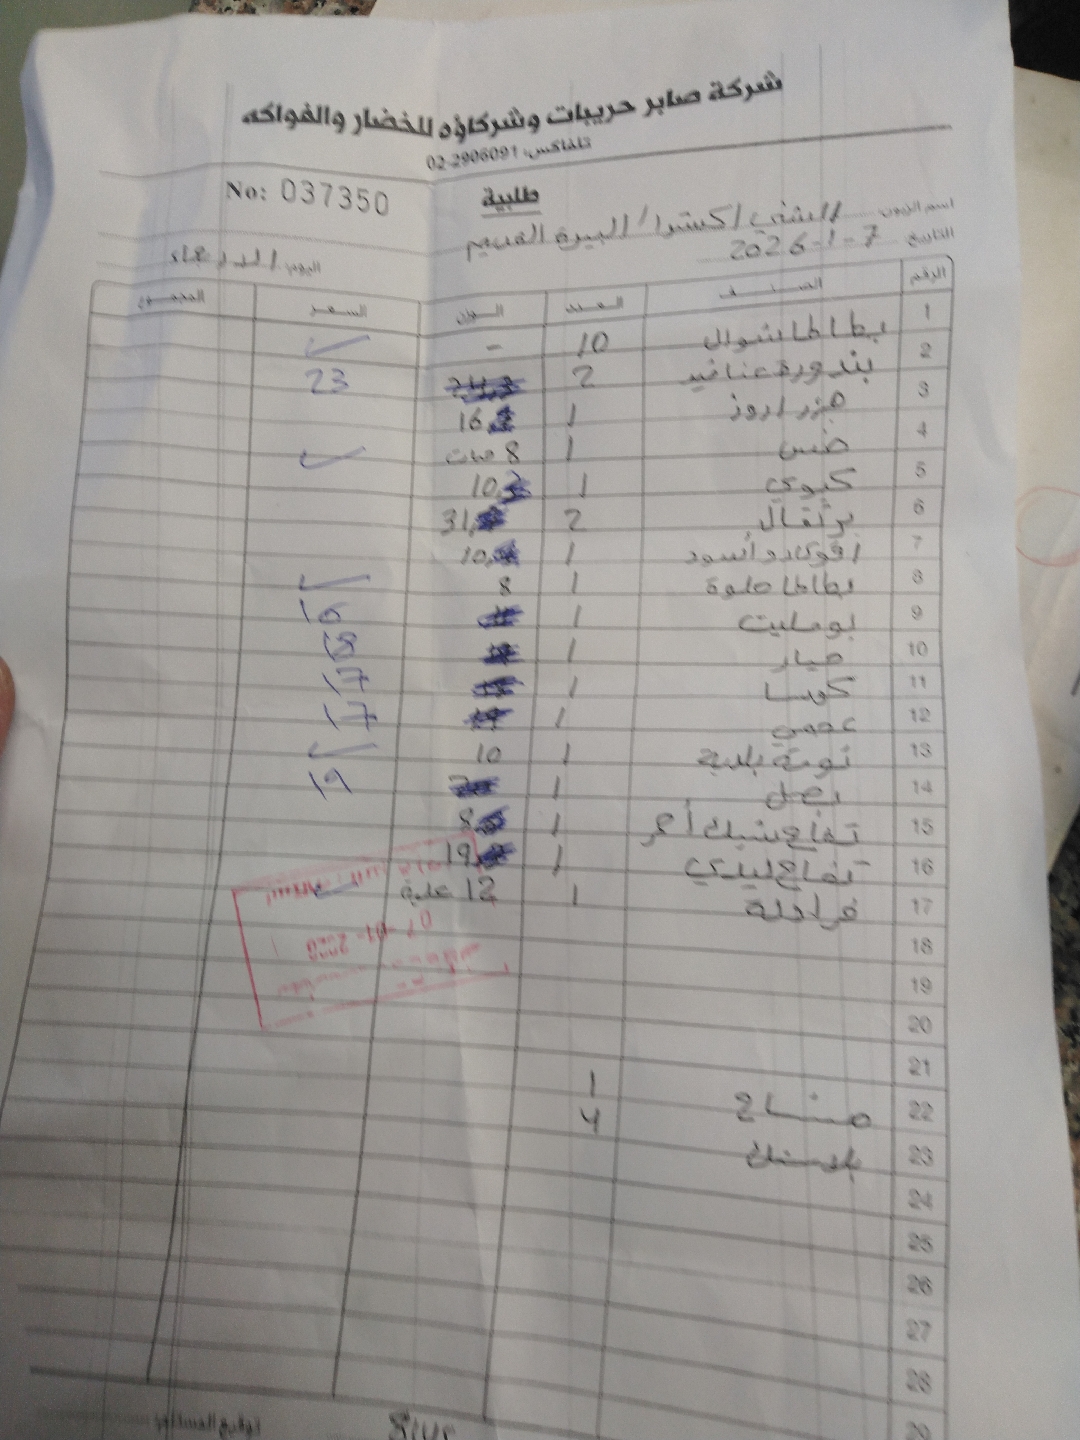 شركة صابر حريبات وشركاؤه للخضار والفواكه
تلفاكس: 02-2906091
No: 037350
طلبية
اسم الزبون الشني اكسترا / البيرة القديم
التاريخ 7-1-2026
اليوم الاربعاء
الرقم الصنف العدد الوزن السعر المجموع
1 بطاطا شوال 10 -
2 بندورة عناقيد 2 23
3 جزر اروز 1 16
4 خس 1 8 حبات
5 كيوي 1 10
6 برتقال 2 31
7 افوكادو أسود 1 10
8 بطاطا حلوة 1 8
9 بوملیت 1 16
10 خيار 1 18
11 كوسا 1 17
12 عجمي 1 17
13 تومة بلدية 1 10
14 بصل 1 19
15 تفاح ستارك أحمر 1 8
16 تفاح ليدي 1 19
17 فراولة 1 12 علبة
18
19
20
21
22 مشتاح 1
23 بلاستك 4
24
25
26
27
28
29
07-01-2026
توقيع المستلم